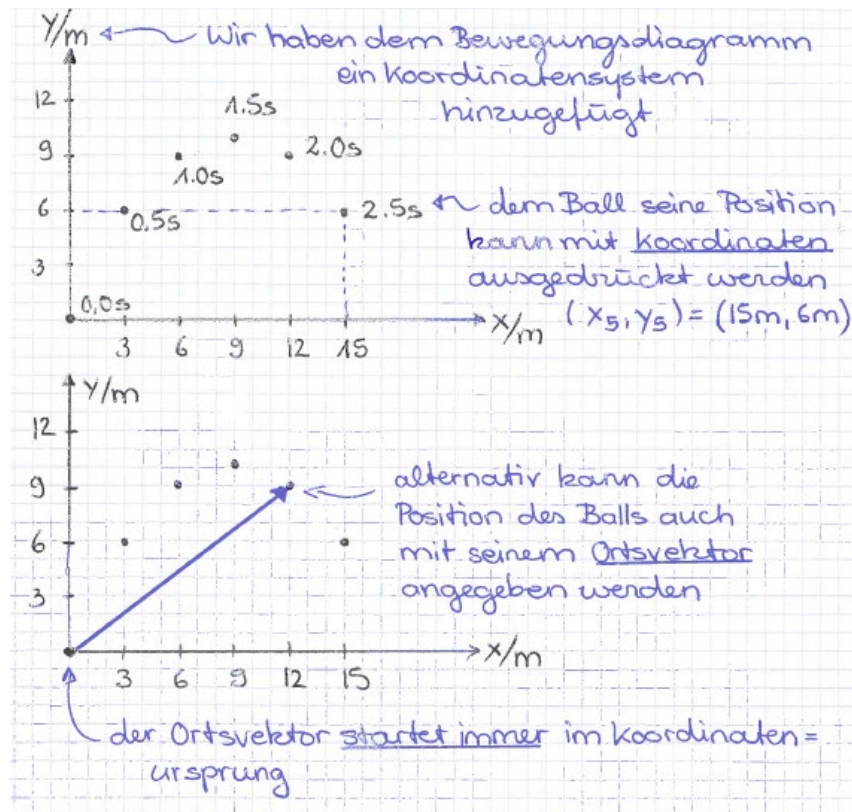 Y/m
Wir haben dem Bewegungsdiagramm
ein Koordinatensystem
hinzugefügt
12
1.5s
9
2.0s
1.0s
6
0.5s
2.5s
dem Ball seine Position
kann mit Koordinaten
ausgedrückt werden
(x5, y5) = (15m, 6m)
3
0,0s
X/m
3 6 9 12 15
Y/m
12
9
6
3
alternativ kann die
Position des Balls auch
mit seinem Ortsvektor
angegeben werden
X/m
3 6 9 12 15
der Ortsvektor startet immer im Koordinaten=
ursprung